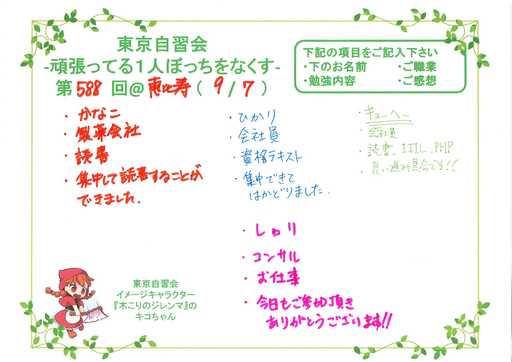 東京自習会
-頑張ってる1人ぼっちをなくす-
第 588 回@ 恵比寿 ( 9 / 7 )
下記の項目をご記入下さい
・下のお名前 ・ご職業
・勉強内容 ・ご感想
・かなこ
・製薬会社
・読書
・集中して読書することが
できました。
・ひかり
・会社員
・資格テキスト
・集中できて
はかどりました。
・キョーヘー
・会社員
・読書、ITIL、PHP
・しゅり
・コンサル
・お仕事
・今日もご参加頂き
ありがとうございます!!
東京自習会
イメージキャラクター
『木こりのジレンマ』の
キコちゃん